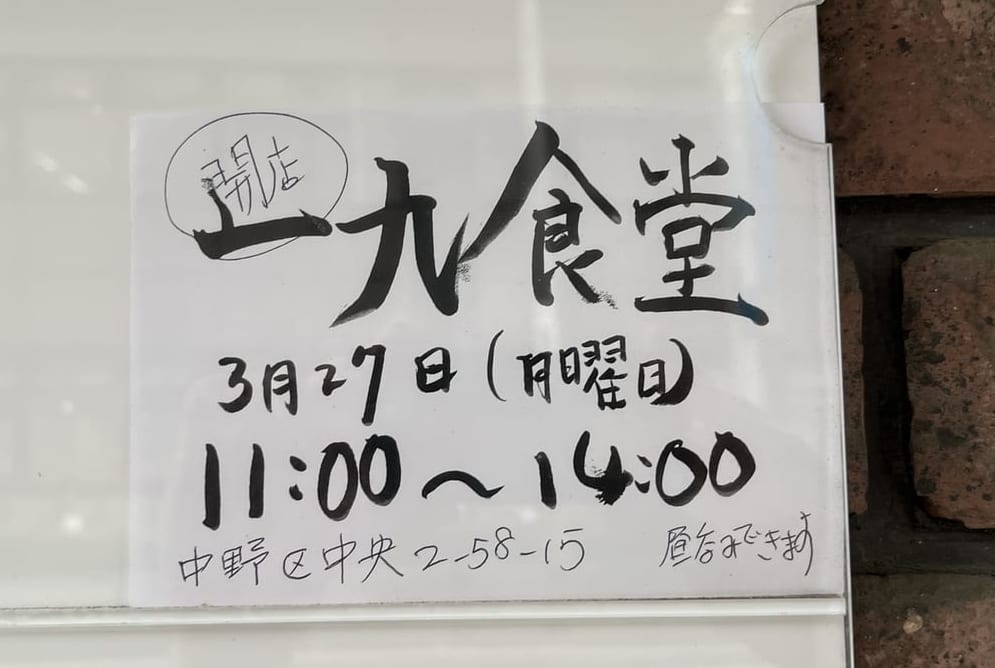 開店
一九食堂
3月27日(月曜日)
11:00～14:00
中野区中央2-58-15
昼呑みできます